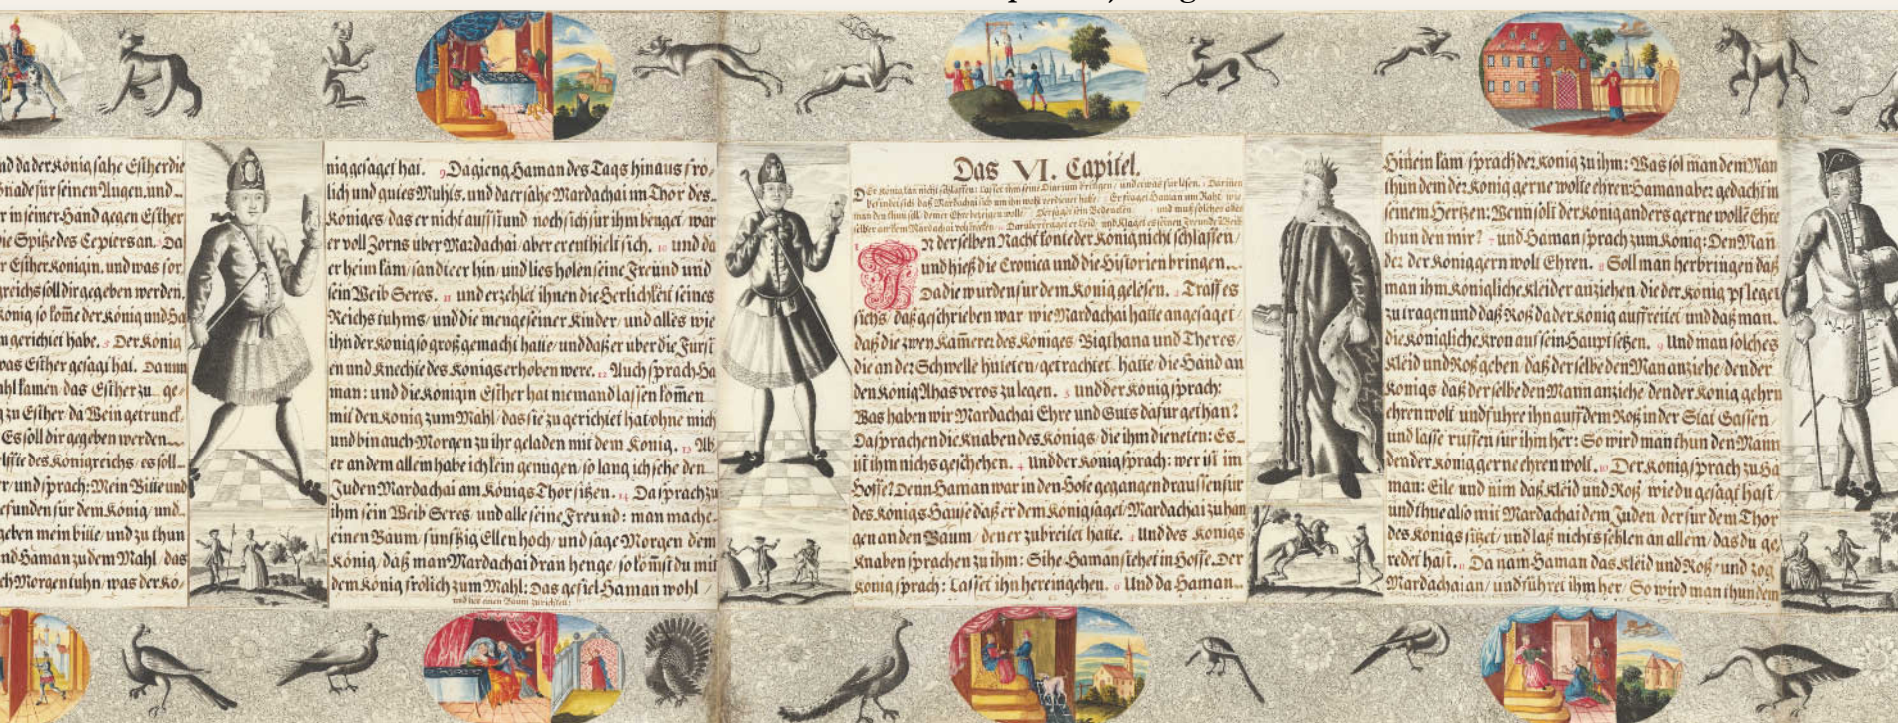 nd da der König sahe Esther die
für seinen Augen, und
r in seiner Hand gegen Esther
ie Spitze des Cepters an. Da
r Esther Königin, und was for,
greichs soll dir gegeben werden.
önig so kom̄e der König und Ha
n gerichtet habe. 5 Der König
was Esther gesagt hat. Da nun
ahl kamen, das Esther zu ge-
g zu Esther da Wein getrunck,
Es soll dir gegeben werden
elfte des Königreichs, es soll
er, und sprach: Mein Bitte und
efunden für dem König, und
geben mein bitte, und zu thun
nd Haman zu dem Mahl, das
ch Morgen tuhn, was der Kö,
nig gesaget hat. 9 Da gieng Haman des Tags hinaus frö,
lich und gutes Muhts, und da er sahe Mardachai im Thor des
Königes das er nicht auff stund noch sich für ihm beuget, war
er voll Zorns über Mardachai, aber er enthielt sich. 10 und da
er heim kam, sandte er hin, und lies holen seine Freünd und
sein Weib Seres. 11 und erzehlet ihnen die Herlichkeit seines
Reichstuhms, und die menge seiner Kinder, und alles wie
ihn der König so groß gemacht hatte, und daß er über die Fürst
en und Knechte des Königs erhoben were. 12 Auch sprach Ha
man: und die Königin Esther hat niemand lassen kom̄en
mit den König zum Mahl, das sie zu gerichtet hat ohne mich
und bin auch Morgen zu ihr geladen mit dem König. 13 Ab
er an dem allem habe ich kein genugen, so lang ich sehe den
Juden Mardachai am Königs Thor sitzen. 14 Da sprach zu
ihm sein Weib Seres und alle seine Freund: man mache
einen Baum, funfzig Ellen hoch, und sage Morgen dem
König, daß man Mardachai dran henge, so köm̄st du mit
dem König frölich zum Mahl: Das gefiel Haman wohl,
und lies einen Baum zurichten:
Das VI. Capitel.
Der König kan nicht schlaffen: Lasset ihm seine Diarium bringen, und etwas für lesen. Darinen
befindet sich daß Mardachai sich um ihn wohl verdienet habe, Er fraget Haman um Raht, wie
man den thun soll, deme er Ehre bezeigen wolle, Der sagt sein Bedencken, und muß solches alles
selber an dem Mardachai volziehen
In derselben Nacht konte der König nicht schlaffen,
und hieß die Cronica und die Historien bringen.
Da die wurden für dem König gelesen. 2 Traff es
sichs, daß geschrieben war wie Mardachai hatte angesaget,
daß die zwey Kam̄erer des Königes, Bigthana und Theres,
die an der Schwelle hüteten, getrachtet hatte, die Hand an
den König Ahasveros zu legen. 3 und der König sprach:
Was haben wir Mardachai Ehre und Guts dafur gethan?
Da sprachen die Knaben des Königs, die ihm dieneten: Es
ist ihm nichs geschehen. 4 Und der König sprach: wer ist im
Hoffe? Denn Haman war in den Hofe gegangen draussen für
des Königs Hause daß er dem König saget, Mardachai zu han
gen an den Baum, den er zubreitet hatte. 5 Und des Königs
Knaben sprachen zu ihm: Sihe Haman stehet in Hoffe. Der
König sprach: Lasset ihn herein gehen. 6 Und da Haman
hinein kam, sprach der König zu ihm: Was sol man dem Man
thun dem der König gerne wolte ehren Haman aber gedacht in
seinem Hertzen: Wenn solt der König anders gerne wolle Ehre
thun den mir? 7 und Haman sprach zum König: Den Man
der der König gern wolt Ehren. 8 Soll man herbringen daß
man ihm Königliche Kleider anziehen, die der König pfleget
zu tragen und daß Roß da der König auff reitet, und daß man
die Königliche Kron auf sein Haupt setzen. 9 Und man solches
Kleid und Roß geben, daß derselbe den Man anziehe, den der
Königs daß derselbe den Mann anziehe, den der König gehrn
ehren wolt und fuhre ihn auff dem Roß in der Stat Gassen,
und lasse ruffen für ihm her: So wird man thun den Mann
den der König gerne ehren wolt. 10 Der König sprach zu Ha
man: Eile und nim daß Kleid und Roß, wie du gesagt hast,
und thue also mit Mardachai dem Juden der für dem Thor
des Königs sitzet, und laß nichts fehlen an allem, das du ge,
redet hast. 11 Da nam Haman das Kleid und Roß, und zog
Mardachai an, und führet ihm her, So wird man thun dem